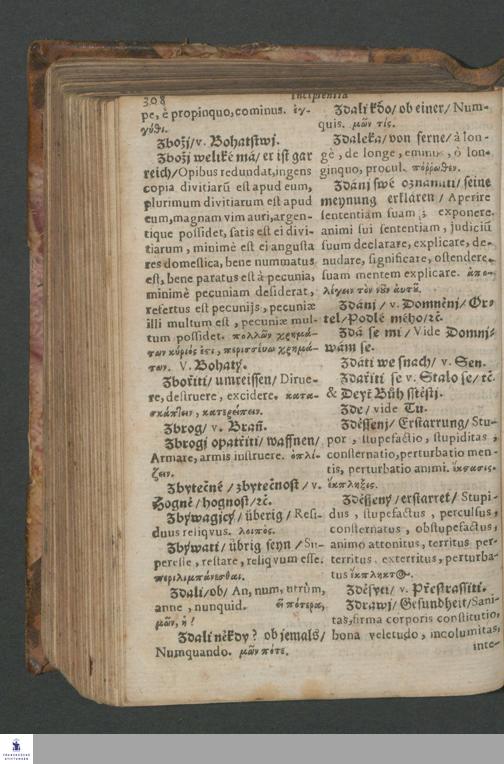 308
Incipientia
pe, è propinquo, cominus. ἐγ-
γύθι.
Zbožj/ v. Bohatstwj.
Zbožj weliké má/ er ist gar
reich/ Opibus redundat, ingens
copia divitiarũ est apud eum,
plurimum divitiarum est apud
eum, magnam vim auri, argen-
tique possidet, satis est ei divi-
tiarum, minimè est ei angusta
res domestica, bene nummatus
est, bene paratus est à pecunia,
minimè pecuniam desiderat,
refertus est pecunijs, pecuniæ
illi multum est, pecuniæ mul-
tum possidet. πολλῶν χρημά-
των κύριός ἐστι, περιστένω χρημά-
των. V. Bohatý.
Zbořiti/ umreissen/ Dirue-
re, destruere, excidere. κατα-
σκάπτειν, κατερείπειν.
Zbrog/ v. Brañ.
Zbrogj opatřiti/ waffnen/
Armare, armis instruere. ὁπλί-
ζειν.
Zbytečně / zbytečnost / v.
Hogně/ hognost/ ꝛč.
Zbýwagjcý/ überig/ Resi-
duus reliqvus. λοιπός.
Zbýwati/ übrig seyn/ Su-
peresse, restare, reliqvum esse.
περιλιμπάνεσθαι.
Zdali/ ob/ An, num, utrùm,
anne, nunquid. εἰ πότερα,
μῶν, ἢ?
Zdali někdy? ob jemals/
Numquando. μῶν πότε.
Zdali kdo/ ob einer/ Num-
quis. μῶν τίς.
Zdaleka/ von ferne/ à lon-
gè, de longe, eminus, è lon-
ginquo, procul. πόῤῥωθεν.
Zdánj swé oznamiti/ seine
meynung erklären / Aperire
sententiam suam; exponere
animi sui sententiam, judiciũ
suum declarare, explicare, de-
nudare, significare, ostendere,
suam mentem explicare. ἀπο-
λέγειν τὸν νῦν αὐτῦ.
Zdánj / v. Domněnj/ Or-
tel/ Podlé mého/ ꝛč.
Zdá se mi/ Vide Domnj-
wám se.
Zdáti we snách/ v. Sen.
Zdařiti se v. Stalo se/ ꝛč.
& Deyž Bůh sstěstj.
Zde/ vide Tu.
Zděssenj/ Erstarrung/ Stu-
por, stupefactio, stupiditas,
consternatio, perturbatio men-
tis, perturbatio animi. ἔκστασις.
ἔκπληξις.
Zděssený/ erstarret/ Stupi-
dus, stupefactus, perculsus,
consternatus, obstupefactus,
animo attonitus, territus per-
territus, exterritus, perturba-
tus ἔκπληκτος.
Zděsyti/ v. Přestrassiti.
Zdrawj/ Gesundheit/ Sani-
tas, firma corporis constitutio,
bona veletudo, incolumitas,
inte-
FRANCKESCHE
STIFTUNGEN